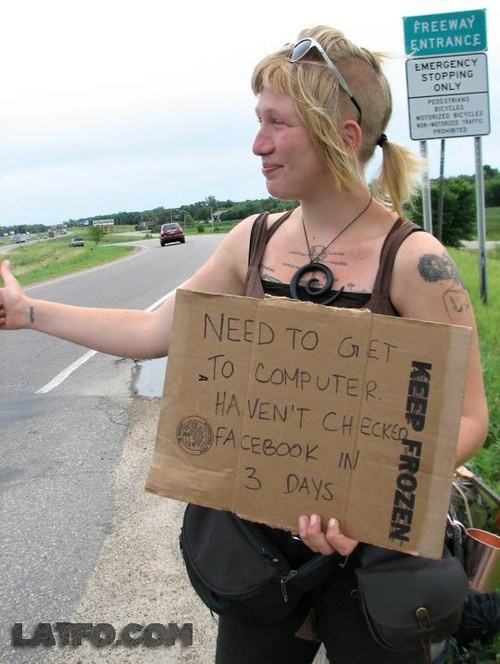 FREEWAY
ENTRANCE
EMERGENCY
STOPPING
ONLY
PEDESTRIANS
BICYCLES
MOTORIZED BICYCLES
NON-MOTORIZED TRAFFIC
PROHIBITED
NEED TO GET
TO A COMPUTER.
HAVEN'T CHECKED
FACEBOOK IN
3 DAYS
KEEP FROZEN
LATFO.COM